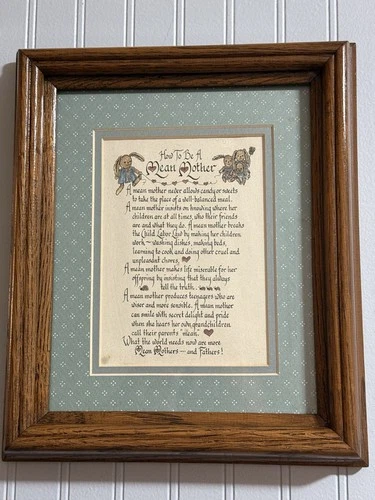 How To Be A
Mean Mother
A mean mother never allows candy or sweets
to take the place of a well-balanced meal.
A mean mother insists on knowing where her
children are at all times, who their friends
are and what they do. A mean mother breaks
the Child Labor Law by making her children
work – washing dishes, making beds,
learning to cook and doing other cruel and
unpleasant chores.
A mean mother makes life miserable for her
offspring by insisting that they always
tell the truth.
A mean mother produces teenagers who are
wiser and more sensible. A mean mother
can smile with secret delight and pride
when she hears her own grandchildren
call their parents "mean."
What the world needs now are more
Mean Mothers – and Fathers!